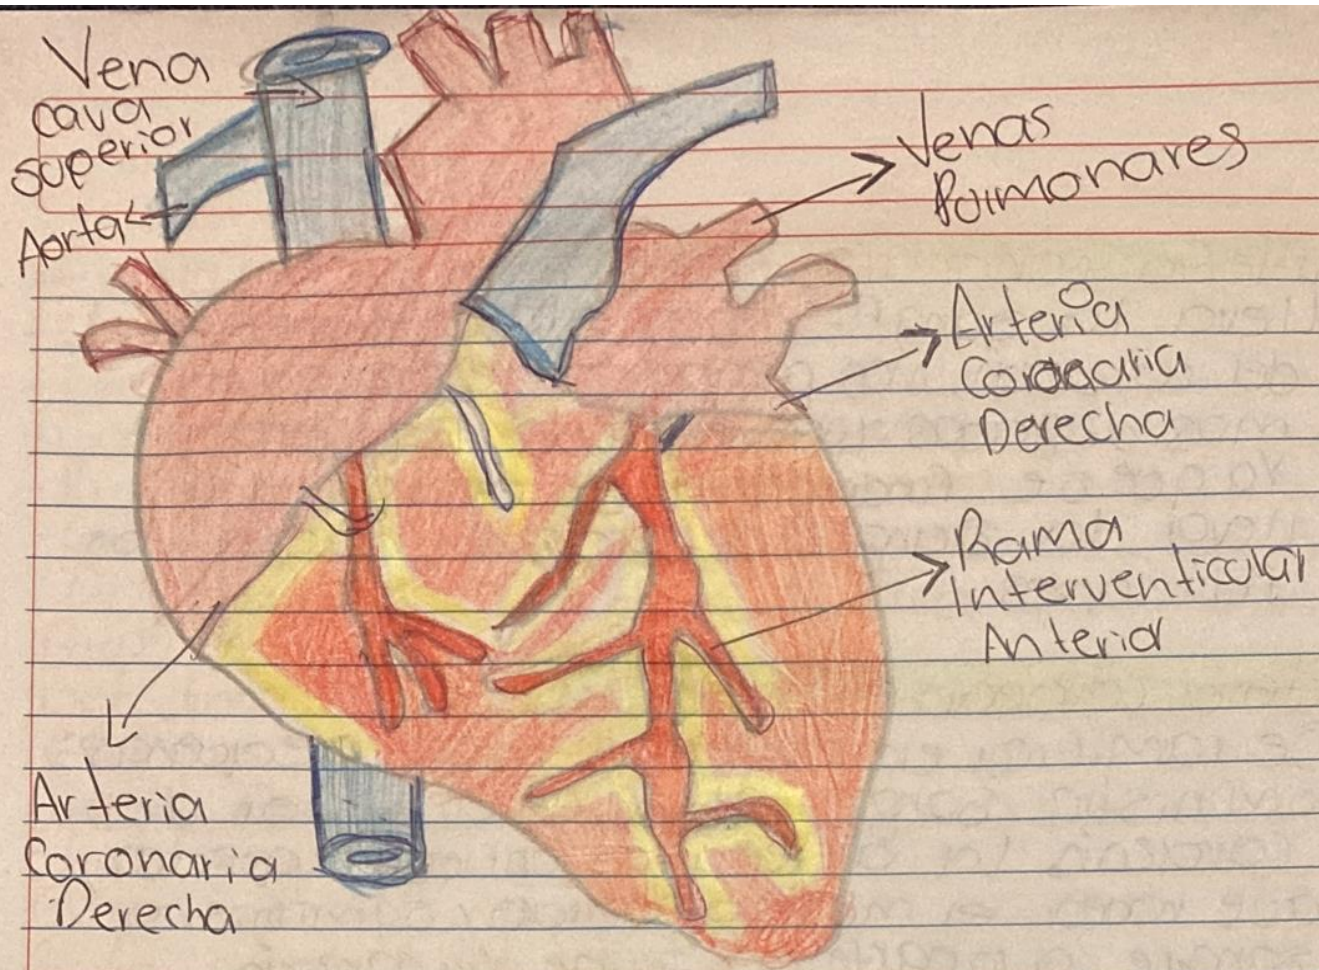 Vena
cava
superior
Aorta
Venas
Pulmonares
Arteria
Coronaria
Derecha
Rama
Interventicular
Anterior
Arteria
Coronaria
Derecha